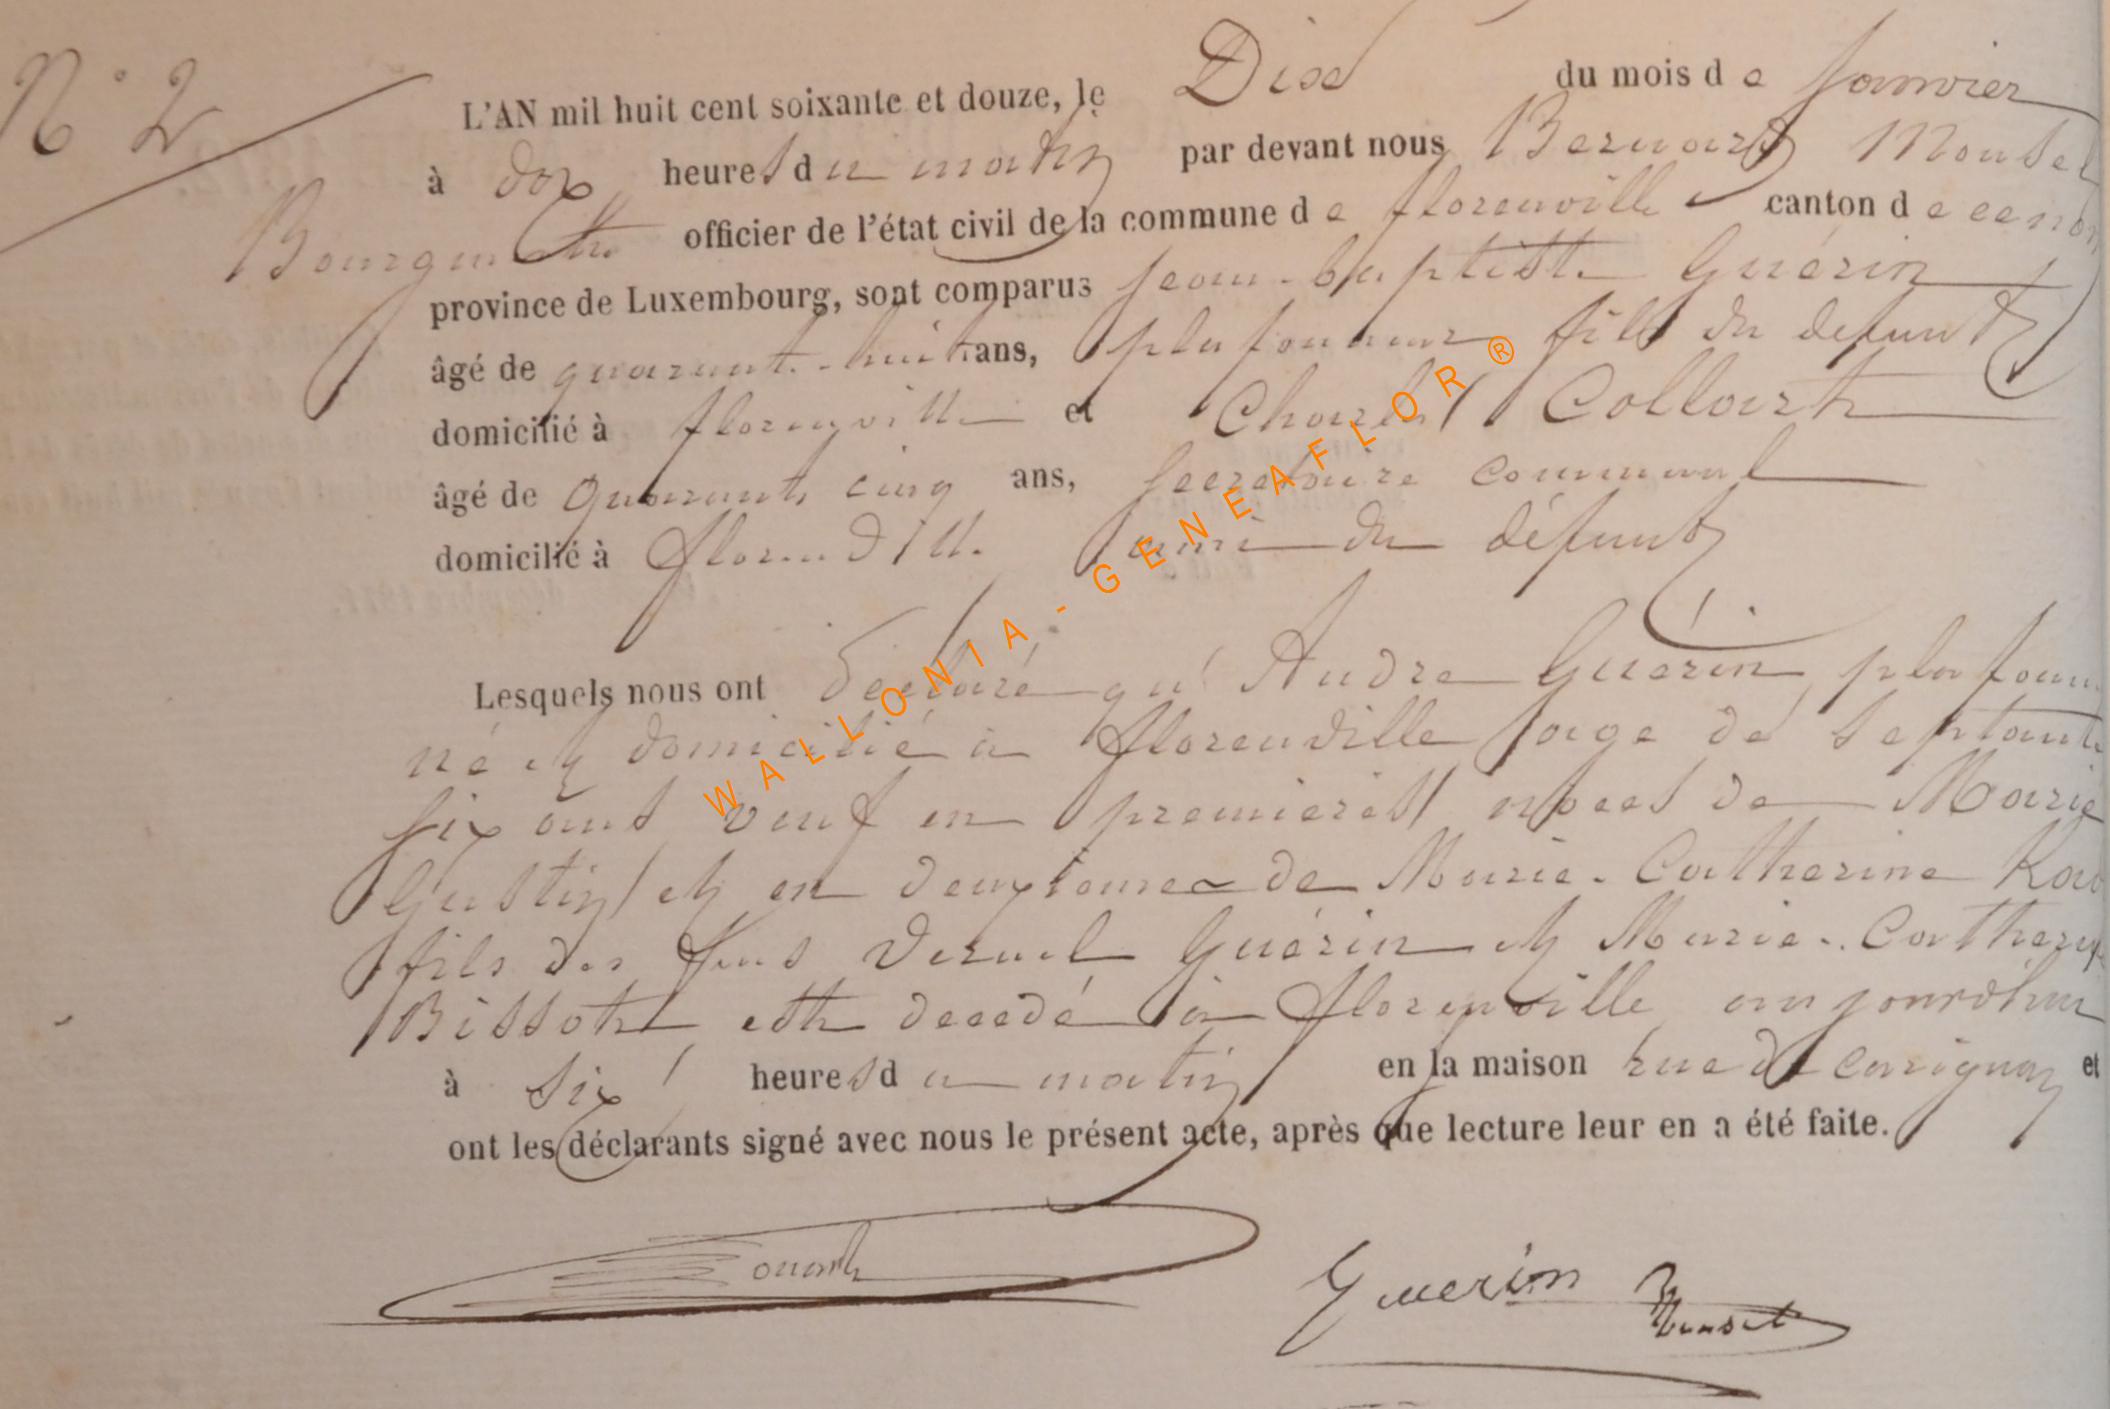 N° 2
L'AN mil huit cent soixante et douze, le Dix du mois de Janvier
à dix heures du matin par devant nous Bernard Monset
Bourgmestre officier de l'état civil de la commune de Florenville canton de ce nom
province de Luxembourg, sont comparus Jean-baptiste Guérin
âgé de quarante-huit ans, plafonneur fils du defunt
domicilié à florenville et Charles Collart
âgé de quarante cinq ans, Secretaire communal
domicilié à florenville ami du défunt
Lesquels nous ont déclaré qu'André Guérin, plafonn
né et domicilié à Florenville, age de septante
six ans veuf en premieres noces de Marie
Gustin et en deuxieme de Marie-Catherine
fils des feus Guérin et Marie-Catherine
Bissot est decedé à Florenville aujourdhui
à six heures du matin en la maison rue de Carignan et
ont les déclarants signé avec nous le présent acte, après que lecture leur en a été faite.
Guerin Monset
WALLONIA - GENEAFLOR®